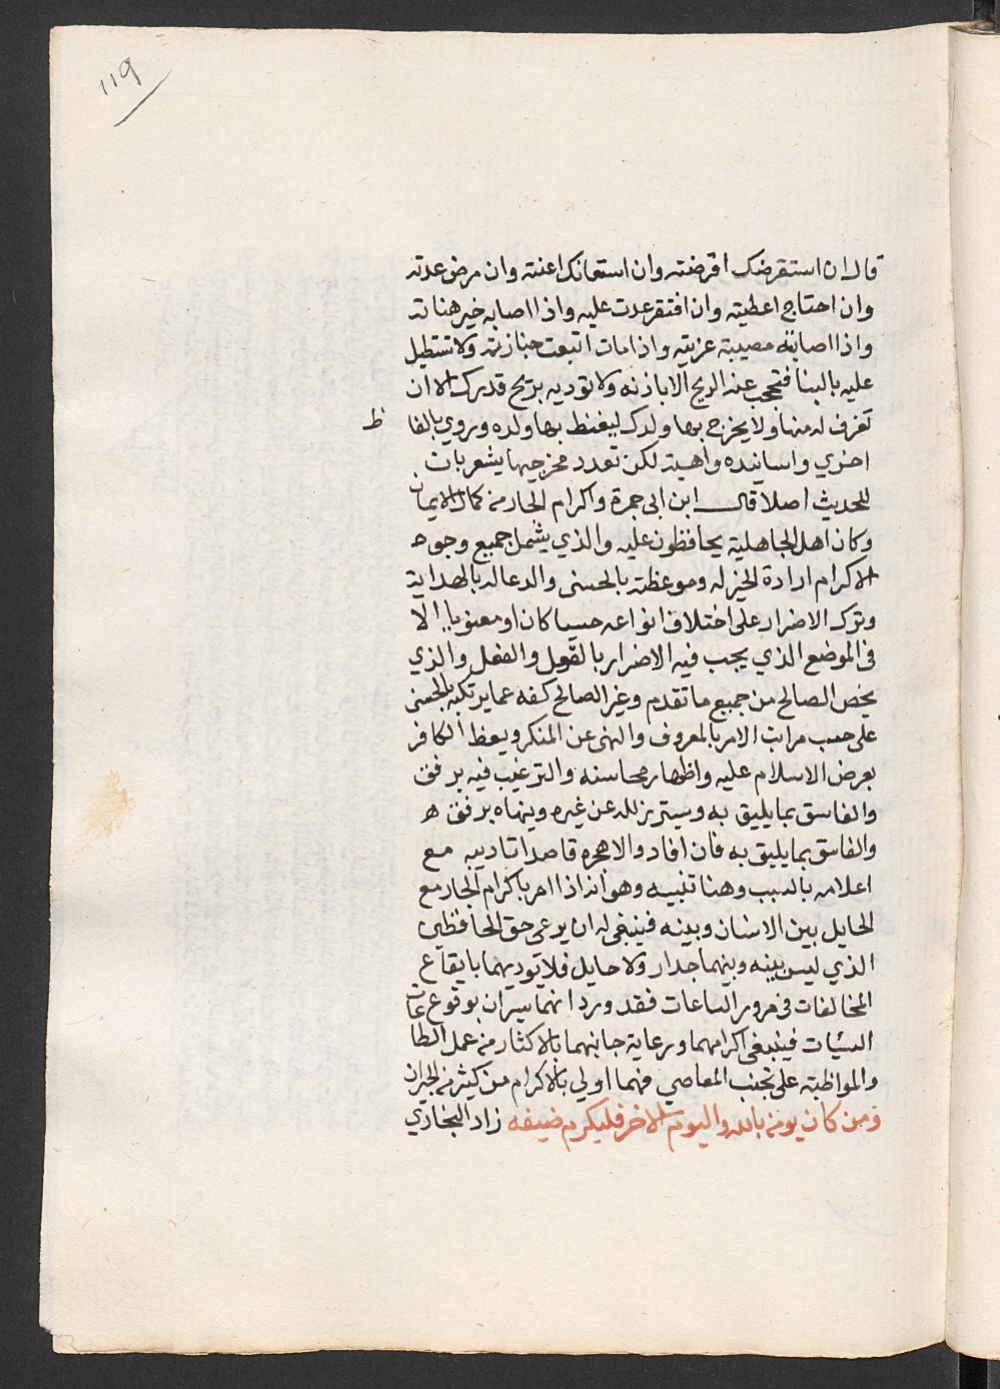 119
قال ان استقرضك اقرضته وان استعانك اعنته وان مرض عدته
وان احتاج اعطيته وان افتقر عدت عليه واذا اصابه خير هناته
واذا اصابته مصيبة عزيته واذا مات اتبعت جنازته ولا تستطيل
عليه بالبنا فتحجب عنه الريح الا باذنه ولا توديه بريح قدرك الا ان
تغرف له منها ولا يخرج بها ولدك ليغيظ بها ولده وروي بالفا
ظ
اخري واسانيده واهية لكن تعدد مخرجيها يشعر بان
للحديث اصلا قال ابن ابي جمرة واكرام الجار من كمال الايمان
وكان اهل الجاهلية يحافظون عليه والذي يشمل جميع وجوه
الاكرام ارادة الخير له وموعظته بالحسنى والدعا له بالهداية
وترك الاضرار على اختلاف انواعه حسيا كان او معنويا الا
في الموضع الذي يجب فيه الاضرار بالقول والفعل والذي
يخص الصالح من جميع ما تقدم وغير الصالح كفه عما يرتكبه بالحسنى
على حسب مراتب الامر بالمعروف والنهي عن المنكر ويعظ الكافر
بعرض الاسلام عليه واظهار محاسنه والترغيب فيه برفق
والفاسق بما يليق به وستر زلله عن غيره وينهاه برفق ه
والفاسق بما يليق به فان افاد والا هجره قاصدا تاديبه مع
اعلامه بالسبب وهنا تنبيه وهو انه اذا امر باكرام الجار مع
الحايل بين الانسان وبينه فينبغي له ان يرعى حق الحافظين
الذي ليس بينه وبينهما جدار ولا حايل فلا يوديهما بايقاع
المخالفات في مرور الساعات فقد ورد انهما يسران بوقوع
السيئات فينبغي اكرامهما ورعاية جانبهما بالاكثار من عمل الطا عات
والمواظبة على تجنب المعاصي فهما اولي بالاكرام من كثير من الجيران
ومن كان يومن بالله واليوم الاخر فليكرم ضيفه زاد البخاري